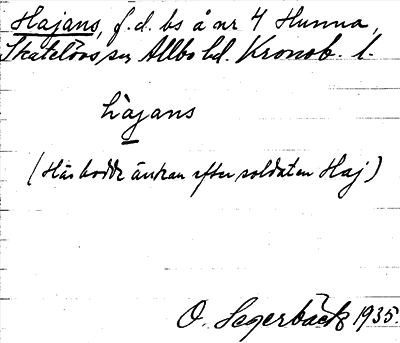 Hajans, f.d. bs å nr 4 Hunna,
Skatelövs sn Allbo hd. Kronob. l.
hàjans
(Här bodde änkan efter soldaten Haj)
O. Segerbäck 1935.